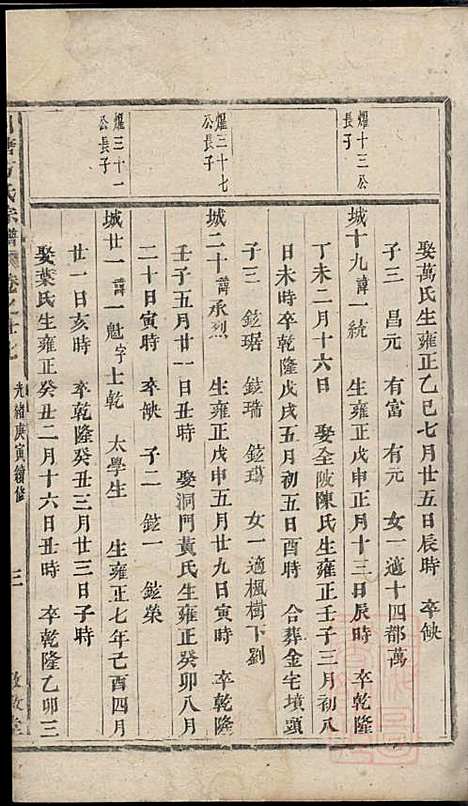 娶萬氏生雍正乙巳七月廿五日辰時 卒缺
子三 昌元 有富 有元 女一適十四都萬
燿十三公
長子
城十九諱一統 生雍正戊申正月十三日辰時 卒乾隆
丁未二月十六日 娶全陂陳氏生雍正壬子三月初八
日未時卒乾隆戊戌五月初五日酉時 合葬金宅墳頭
子三 鎡琚 鎡瑞 鎡璠 女一適楓樹下劉
燿三十七
公長子
城二十諱承烈 生雍正戊申五月廿九日寅時 卒乾隆
壬子五月廿一日丑時 娶洞門黃氏生雍正癸卯八月
二十日寅時 卒缺 子二 鎡一 鎡榮
燿三十一
公長子
城廿一諱一魁字士乾 太學生 生雍正七年己酉四月
廿一日亥時 卒乾隆癸丑三月廿三日子時
娶葉氏生雍正癸丑二月十六日丑時 卒乾隆乙卯三
氏宗譜 卷之廿七 光緒庚寅續修 三 敦堂